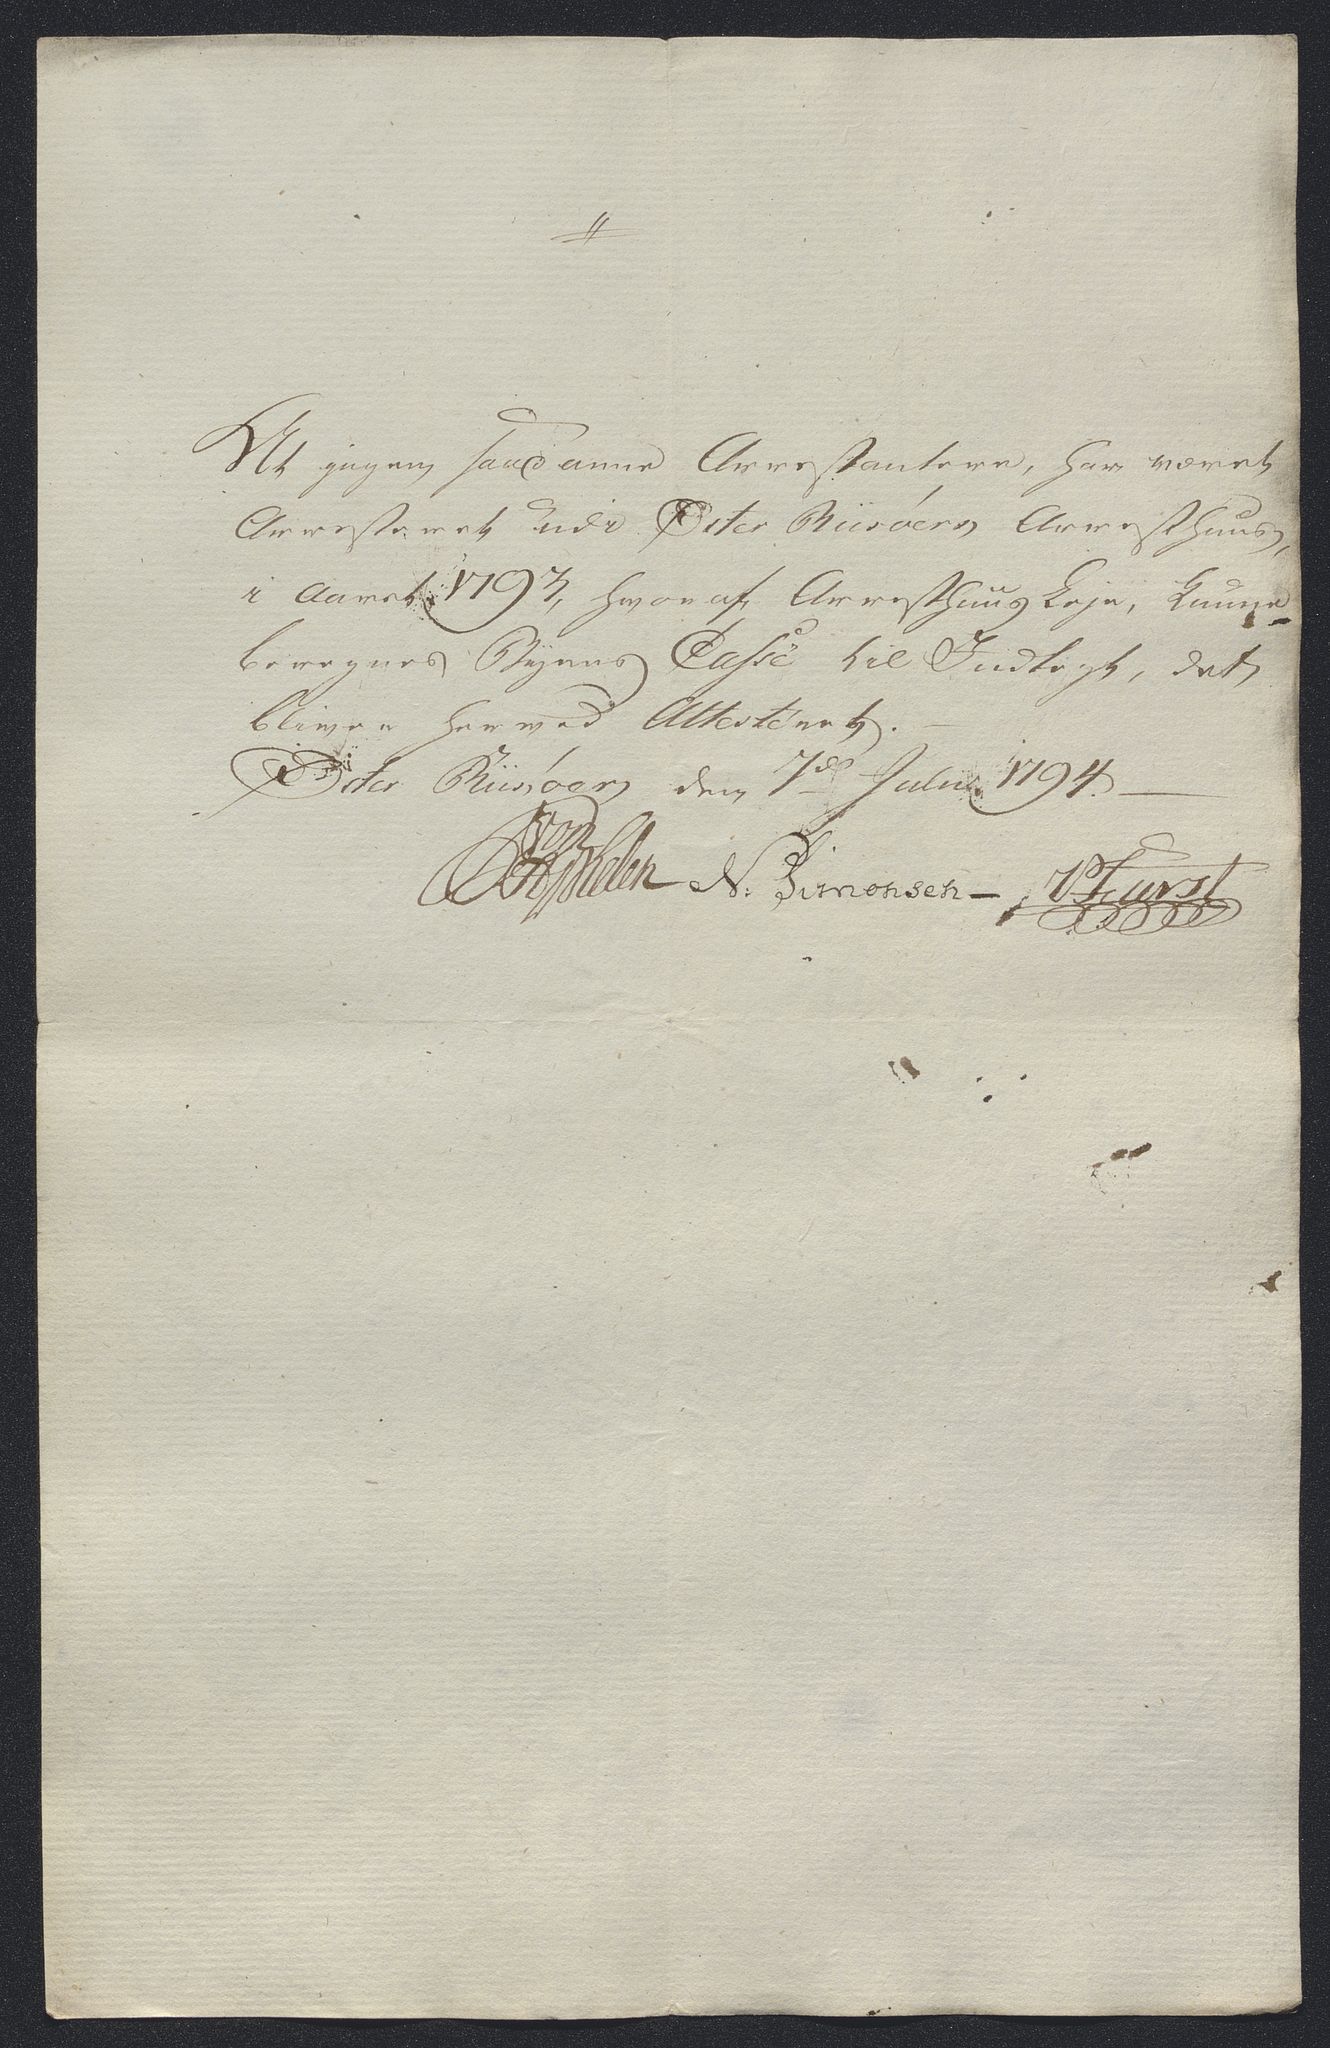 At ingen saadanne Arrestantere, har været
Arresteret udi Øster Riisøers Arresthuus,
i Aaret 1793, hvor af Arresthuus Leje, kunne
beregnes Byens Casse til Indtegt, det
bliver herved Attesteret.
Øster Riisøer den 7de Julii 1794.
N. Simonsen
Furst